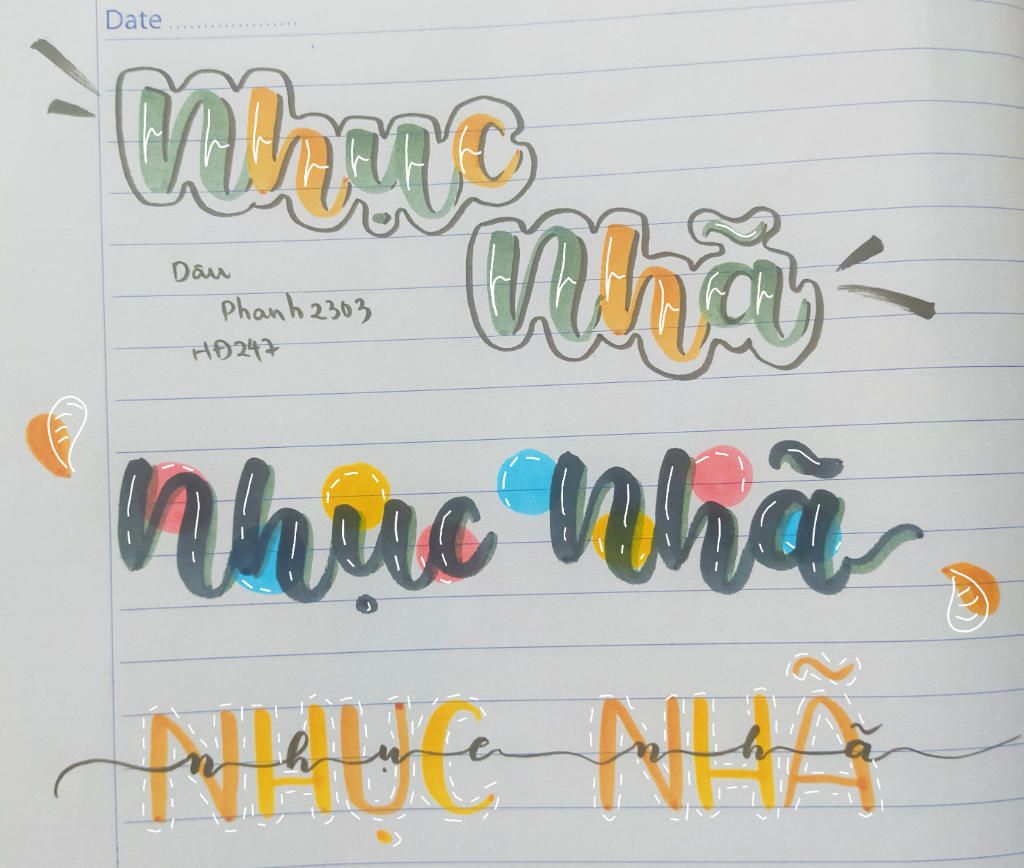 Date ....................
Nhục
Nhã
Dâu
Phanh2303
HĐ247
Nhục Nhã
NHỤC NHÃ
nhục nhã